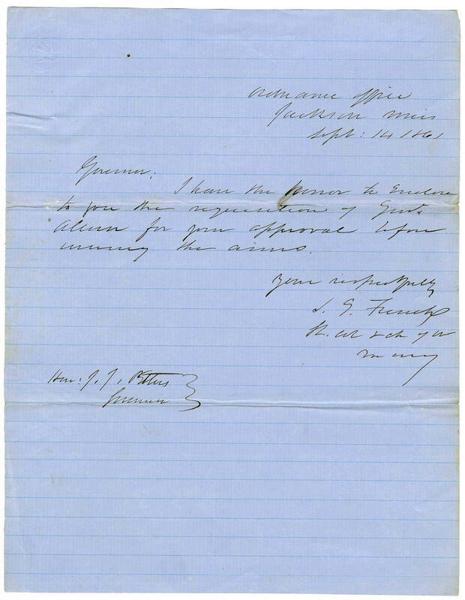 Ordnance Office
Jackson Miss
Sept: 14 1861
Governor.
I have the honor to Enclose
to you the requisition of Genl.
Alcorn for your approval before
issuing the arms.
Your respectfully
S. G. French
Hon: J. J. Pettus
Governor